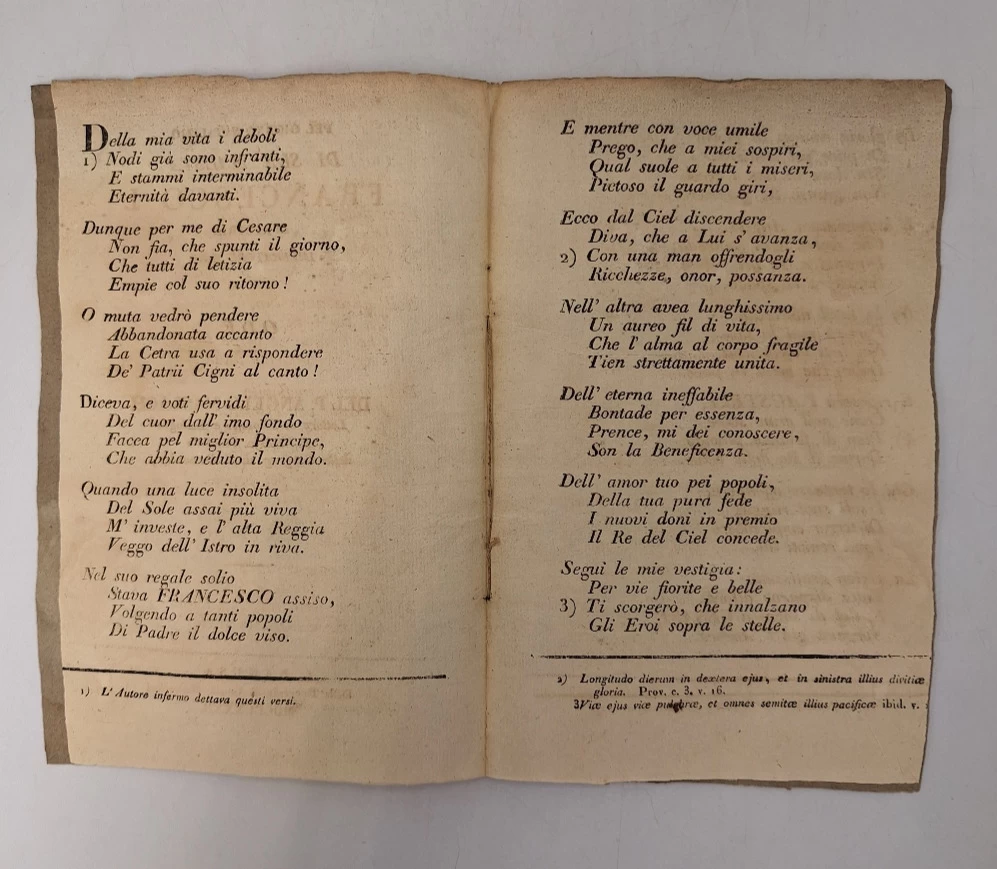 Della mia vita i deboli
1) Nodi già sono infranti,
E stammi interminabile
Eternità davanti.
Dunque per me di Cesare
Non fia, che spunti il giorno,
Che tutti di letizia
Empie col suo ritorno!
O muta vedrò pendere
Abbandonata accanto
La Cetra usa a rispondere
De' Patrii Cigni al canto!
Diceva, e voti fervidi
Del cuor dall' imo fondo
Facea pel miglior Principe,
Che abbia veduto il mondo.
Quando una luce insolita
Del Sole assai più viva
M' investe, e l' alta Reggia
Veggo dell' Istro in riva.
Nel suo regale solio
Stava FRANCESCO assiso,
Volgendo a tanti popoli
Di Padre il dolce viso.
1) L' Autore infermo dettava questi versi.
E mentre con voce umile
Prego, che a miei sospiri,
Qual suole a tutti i miseri,
Pietoso il guardo giri,
Ecco dal Ciel discendere
Diva, che a Lui s' avanza,
2) Con una man offrendogli
Ricchezze, onor, possanza.
Nell' altra avea lunghissimo
Un aureo fil di vita,
Che l' alma al corpo fragile
Tien strettamente unita.
Dell' eterna ineffabile
Bontade per essenza,
Prence, mi dei conoscere,
Son la Beneficenza.
Dell' amor tuo pei popoli,
Della tua pura fede
I nuovi doni in premio
Il Re del Ciel concede.
Segui le mie vestigia:
Per vie fiorite e belle
3) Ti scorgerò, che innalzano
Gli Eroi sopra le stelle.
2) Longitudo dierum in dextera ejus, et in sinistra illius divitiæ
gloria. Prov. c. 3. v. 16.
3 Viæ ejus viæ pulchræ, et omnes semitæ illius pacificæ ibid. v.